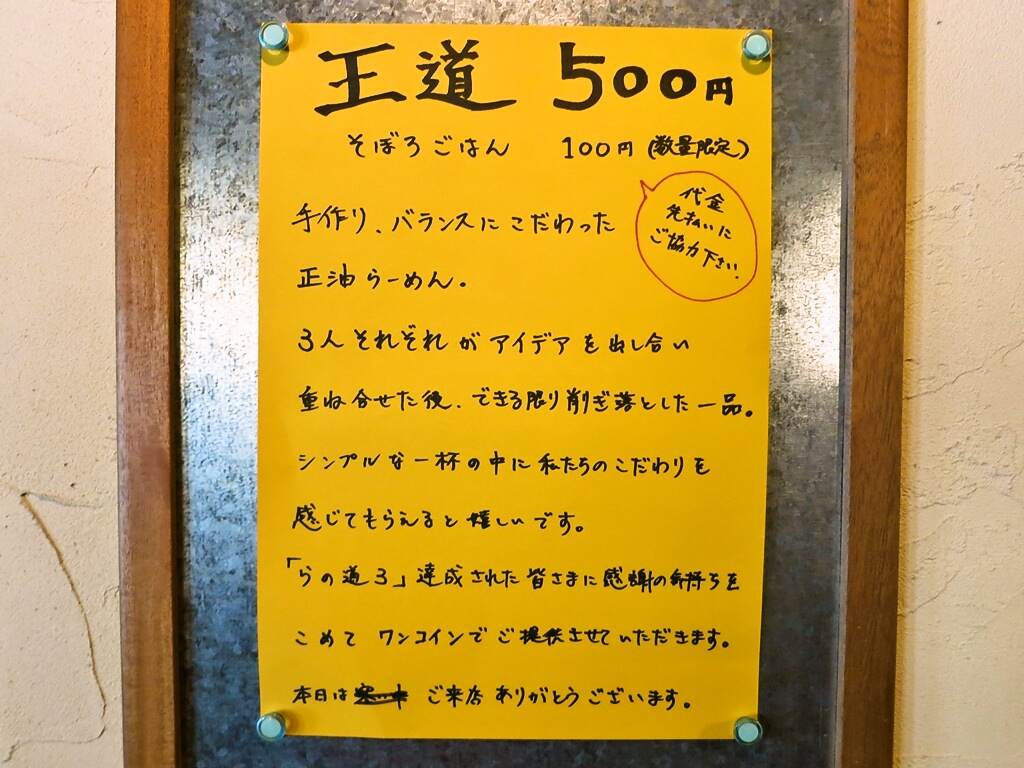 王道 500円
そぼろごはん 100円(数量限定)
代金
先払いに
ご協力下さい.
手作り、バランスにこだわった
正油らーめん。
3人それぞれがアイデアを出し合い
重ね合せた後、できる限り削ぎ落とした一品。
シンプルな一杯の中に私たちのこだわりを
感じてもらえると嬉しいです。
「らの道3」達成された皆さまに感謝の気持ちを
こめてワンコインでご提供させていただきます。
本日は ご来店ありがとうございます。